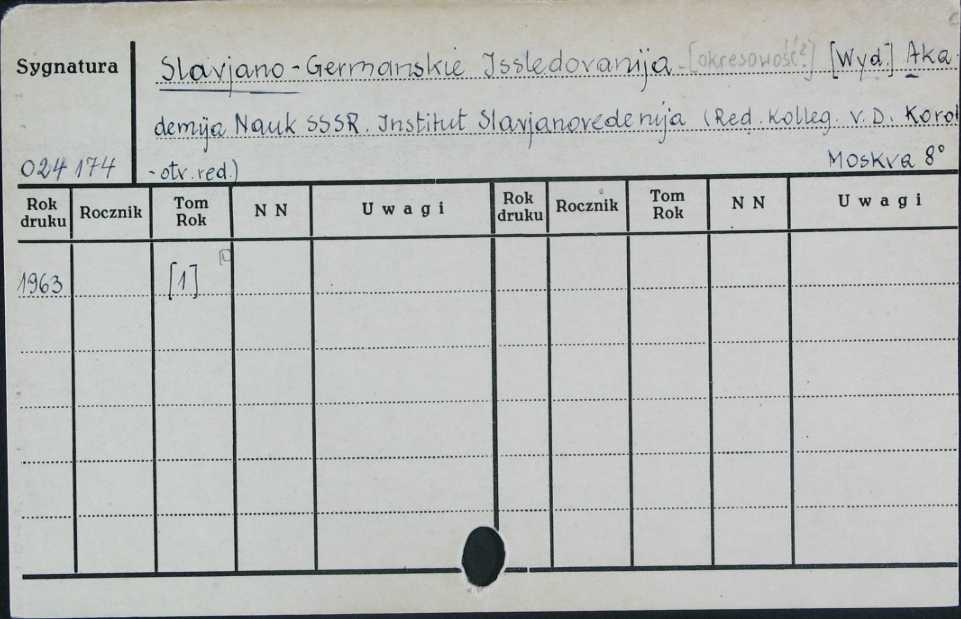 Sygnatura
Slavjano-Germanskie Issledovanija [okresowość?] [Wyd.] Aka
demija Nauk SSSR. Institut Slavjanovedenija (Red. Kolleg. V.D. Korol
024174
-otv. red.)
Moskva 8°
Rok druku Rocznik Tom Rok N N Uwagi Rok druku Rocznik Tom Rok N N Uwagi
1963 [1]